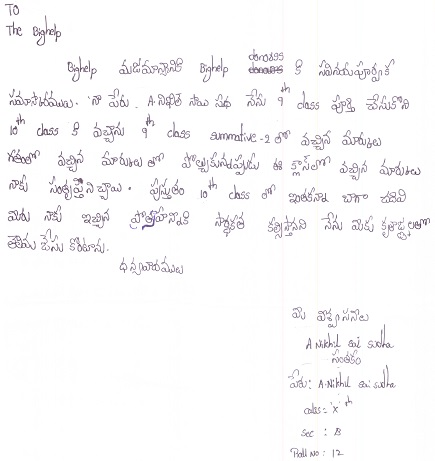 TO
The Bighelp
Bighelp యజమాన్యానికి Bighelp donotss కి సవినయపూర్వక
నమస్కారములు. నా పేరు. A.నిఖిల్ సాయి సుధ నేను 9th class పూర్తి చేసుకొని
10th class కి వచ్చాను 9th class summative-2 లో వచ్చిన మార్కులు
గతంలో వచ్చిన మార్కులతో పోల్చుకున్నప్పుడు ఈ క్లాస్‌లో వచ్చిన మార్కులు
నాకు సంతృప్తినిచ్చాయి. ప్రస్తుతం 10th class లో ఇంతకన్నా బాగా చదివి
మీరు నాకు ఇచ్చిన ప్రోత్సాహాన్నికి సార్థకత కల్పిస్తానని నేను మీకు కృతజ్ఞతలతో
తెలియ చేసు కొంటూను.
ధన్యవాదములు
మీ విశ్వసనీయ
A.Nikhil sai sudha
సంతకం
పేరు: A.Nikhil sai sudha
calss = 'x' th
sec : B
Roll No : 12